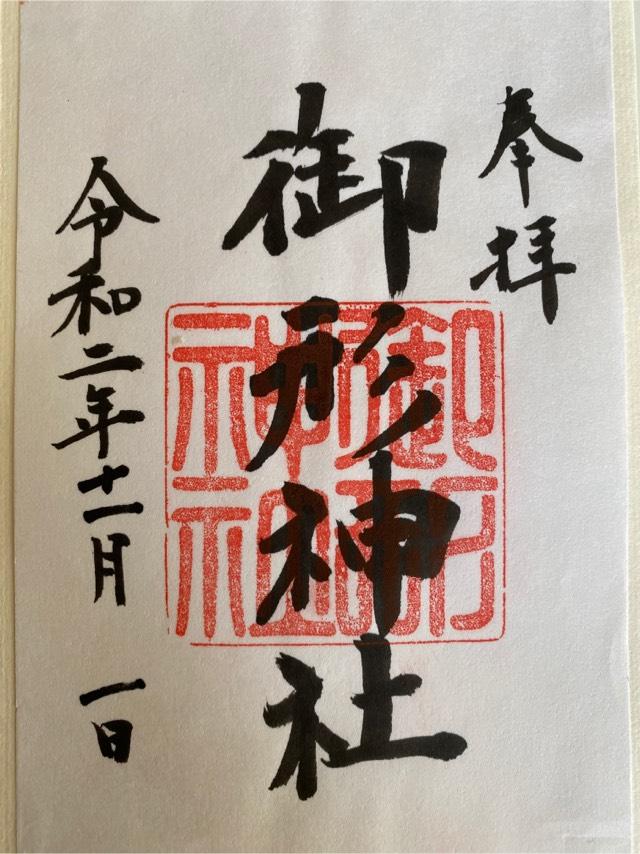 奉拝
御形神社
御形
神社
令和二年十一月一日